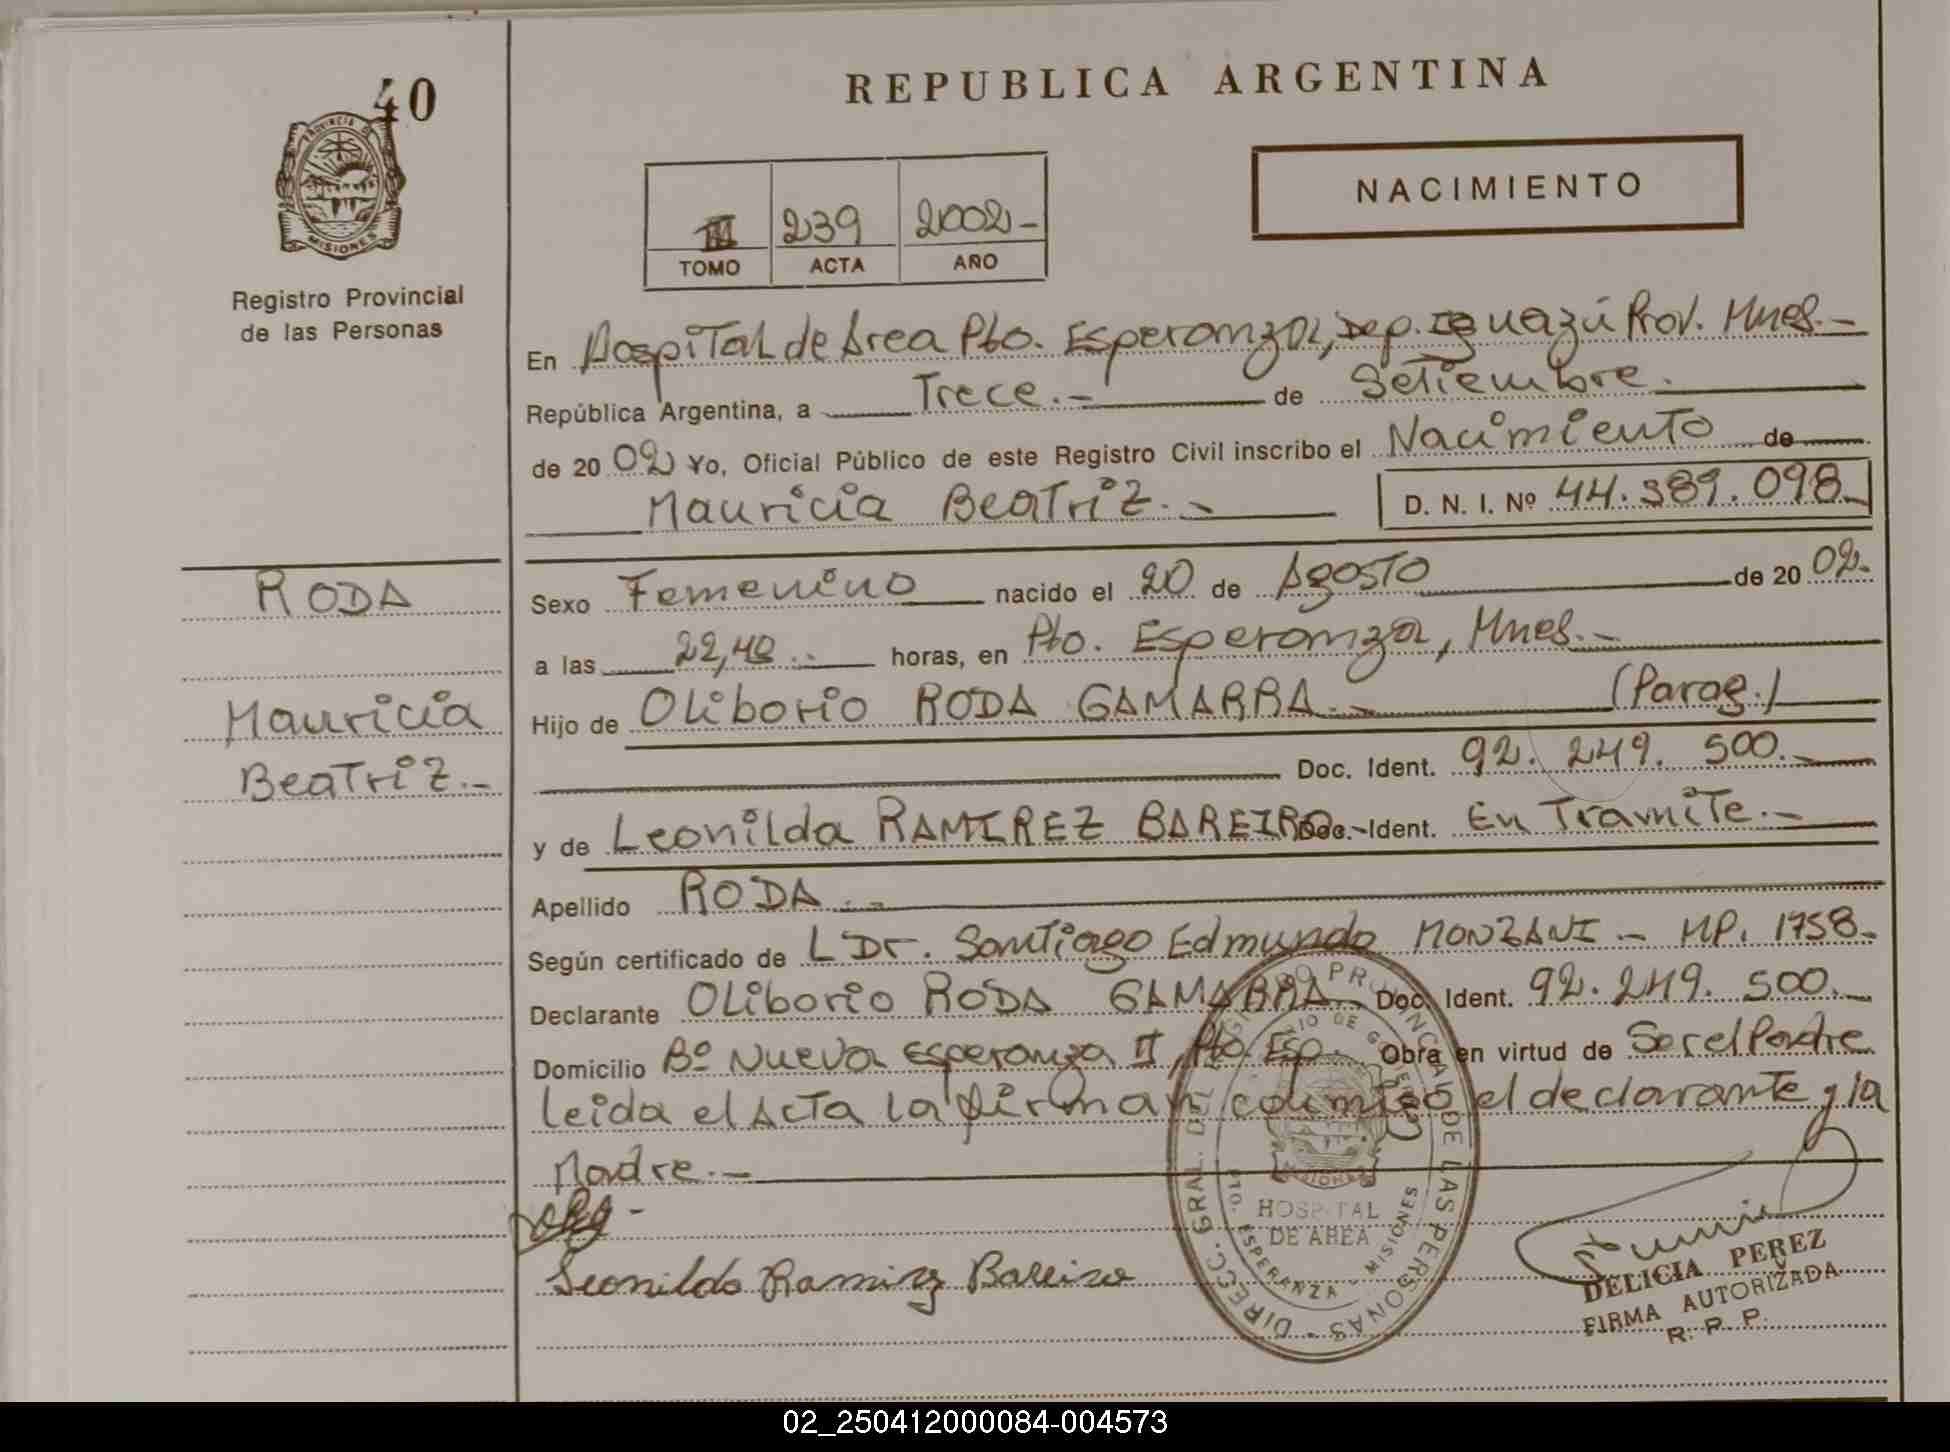 40
PROVINCIA DE
MISIONES
Registro Provincial
de las Personas
RODA
Mauricia
Beatriz.-
REPUBLICA ARGENTINA
NACIMIENTO
III 239 2002-
TOMO ACTA AÑO
En Hospital de Area Pto. Esperanza, Dep. Iguazú Prov. Mnes.-
República Argentina, a Trece.- de Setiembre.
de 20 02 Yo, Oficial Público de este Registro Civil inscribo el Nacimiento de
Mauricia Beatriz.- D. N. I. Nº 44.389.098.
Sexo Femenino nacido el 20 de Agosto de 20 02.
a las 22,40.. horas, en Pto. Esperanza, Mnes.-
Hijo de Oliborio RODA GAMARRA.- (Parag.)
Doc. Ident. 92.249.500.-
y de Leonilda RAMIREZ BAREIRO.- Doc. Ident. En Tramite.-
Apellido RODA.-
Según certificado de L Dr. Santiago Edmundo MONZANI - MP. 1758.
Declarante Oliborio RODA GAMARRA Doc. Ident. 92.249.500.
Domicilio Bº Nueva Esperanza II, Pto. Esp. Obra en virtud de Ser el Padre
leida el Acta la firman conmigo el declarante y la
Madre.-
Leonilda Ramirez Bareiro
DIRECC. GRAL. DEL REGISTRO PROVINCIAL DE LAS PERSONAS -
HOSPITAL
DE AREA
PTO. ESPERANZA - MISIONES
DELICIA PEREZ
FIRMA AUTORIZADA
R. P. P.
02_250412000084-004573